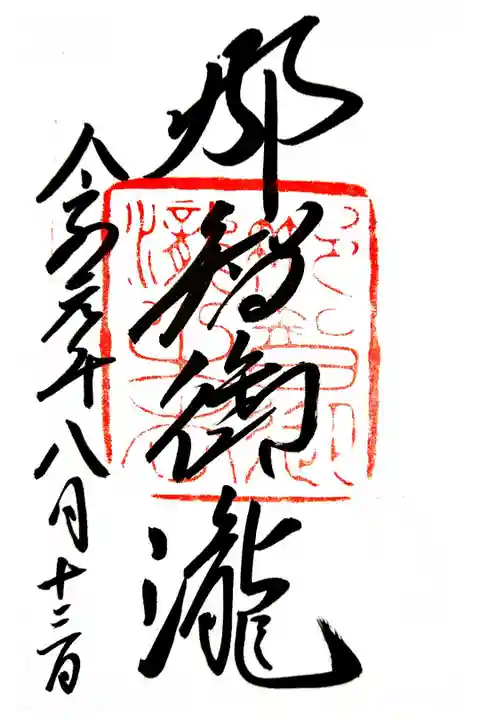 那智御瀧
令和元年八月十二日